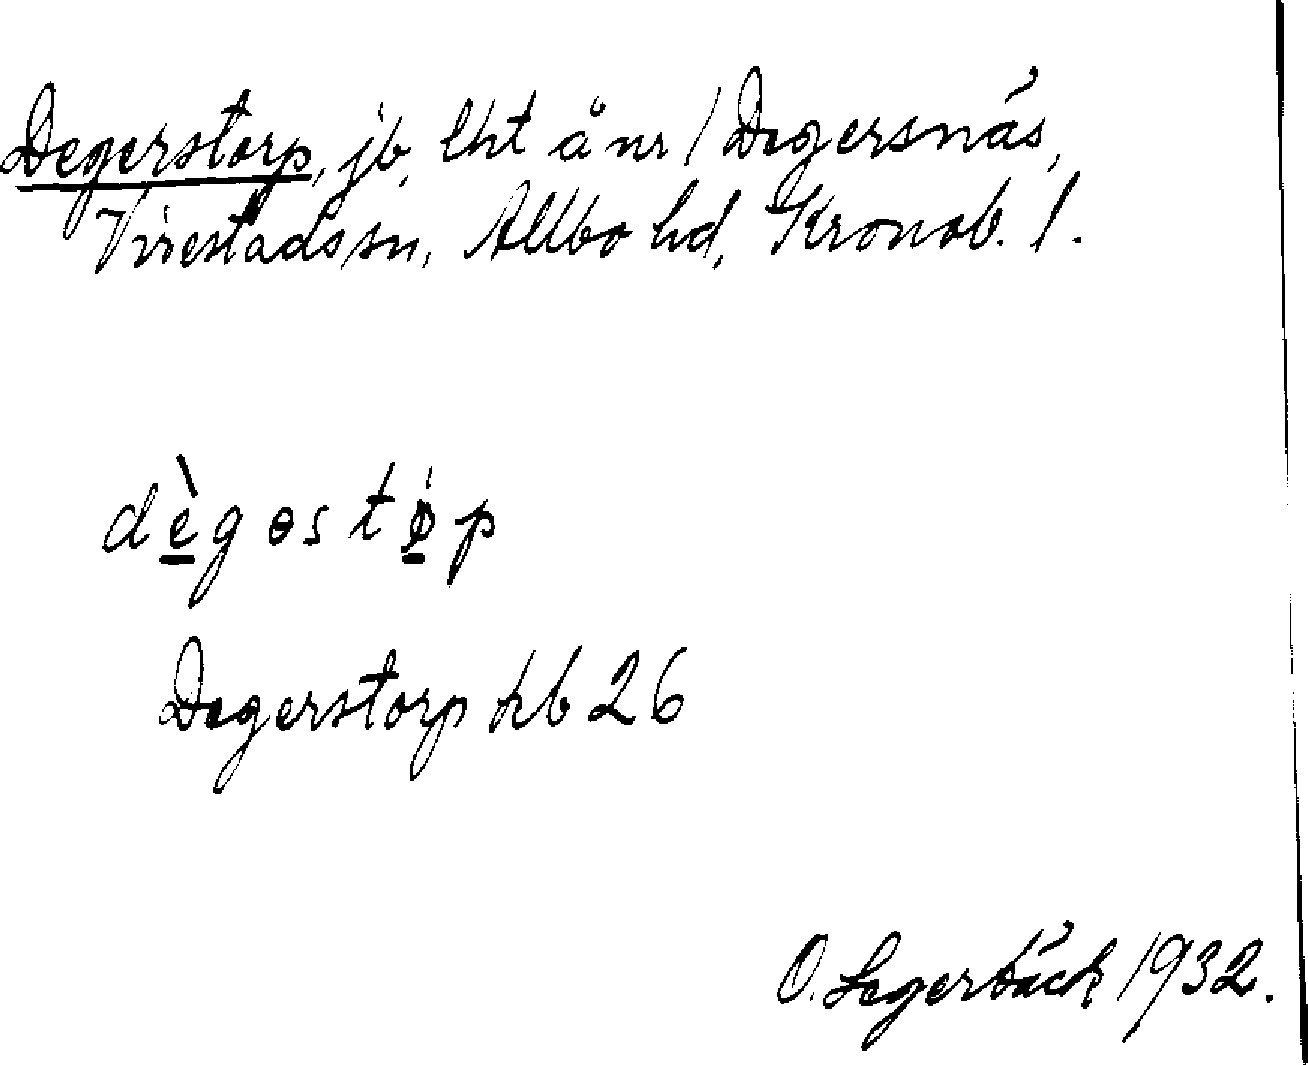 Degerstorp, jb, lht å nr 1 Degersnäs,
Virestads sn, Allbo hd, Kronob. l.
dègɵstǿp
Degerstorp kb 26
O. Segerbäck 1932.